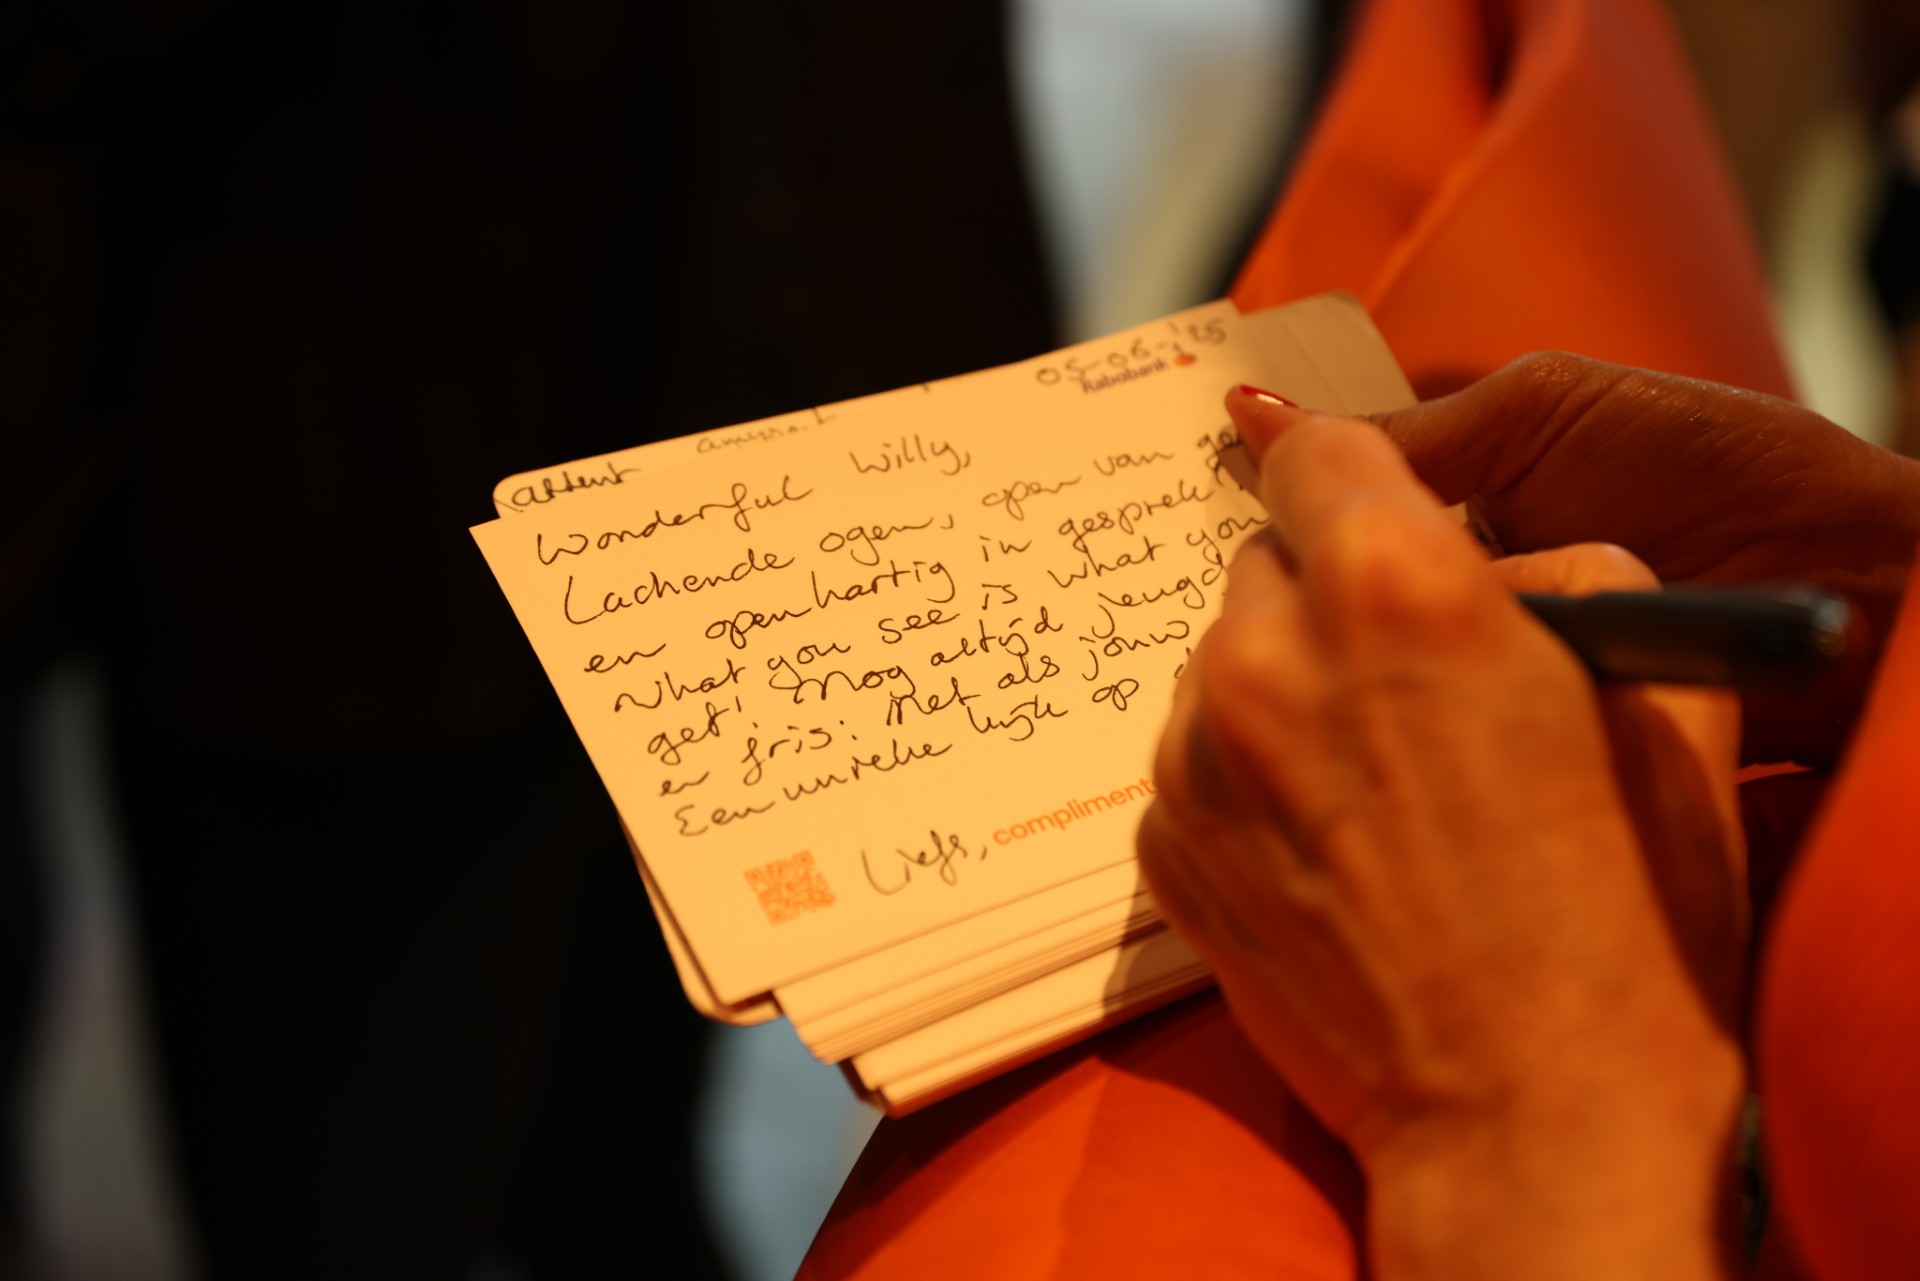 05-06-'25
Rabobank
attent
Wonderful Willy,
Lachende ogen, open van
en openhartig in gesprek!
What you see is what you
get! Mog altijd jeugd
en fris. Met als jouw
Een unieke kijk op
Liefs, compliment